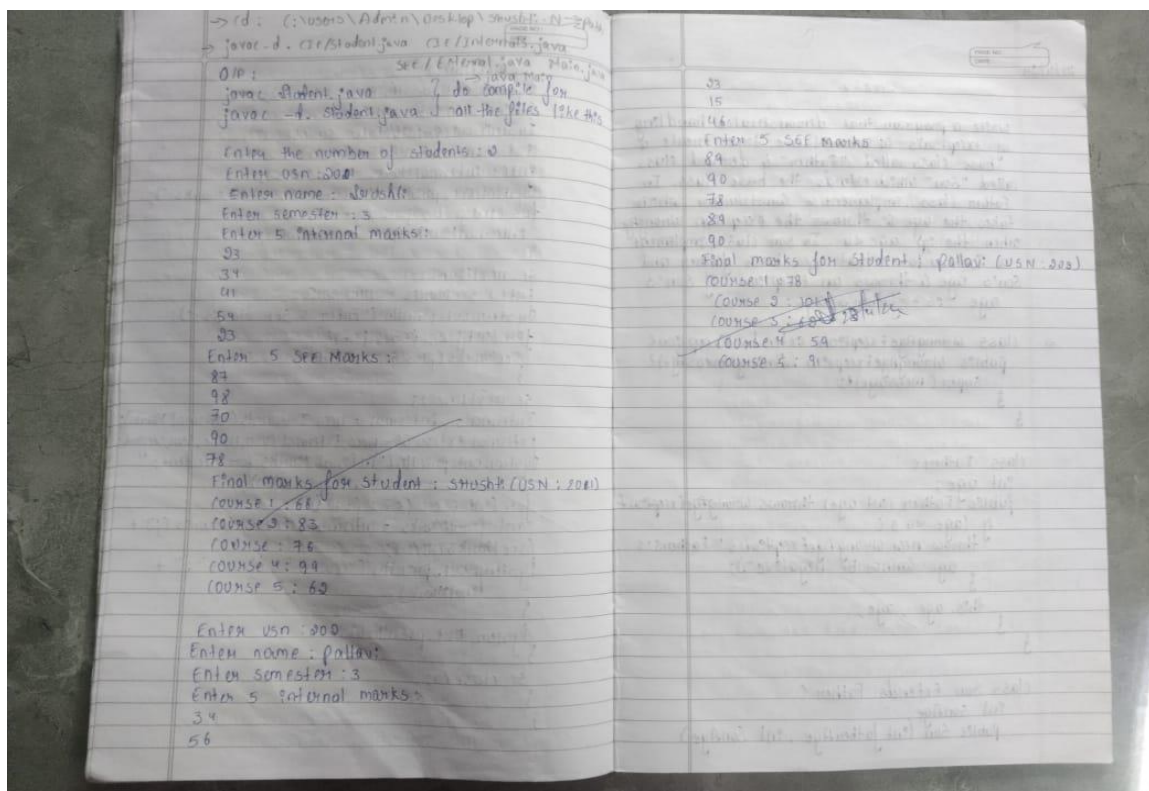 → cd : C:\users\Admin\Desktop\
→ javac -d . CIE/Student.java CIE/Internals.java
SEE/External.java Main.java
→ java Main
O/P :
javac Student.java } do compile for
javac -d. Student.java } all the files like this
Enter the number of students : 2
Enter usn : 2001
Enter name : Srushti
Enter semester : 3
Enter 5 internal marks :
23
34
41
54
23
Enter 5 SEE Marks :
87
98
70
90
78
Final marks for Student : Srushti (USN : 2001)
Course 1 : 66
Course 2 : 83
Course : 76
Course 4 : 99
Course 5 : 62
Enter usn : 200
Enter name : Pallavi
Enter semester : 3
Enter 5 internal marks :
34
56
23
15
46
Enter 5 SEE Marks :
89
90
78
89
90
Final marks for Student : Pallavi (USN : 202)
Course 1 : 78
Course 2 : 101
Course 3 :
Course 4 : 59
Course 5 : 91